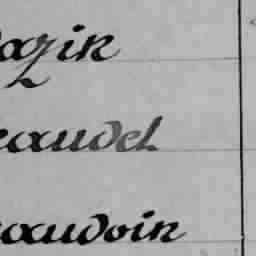 azin
eaudet
eaudoin